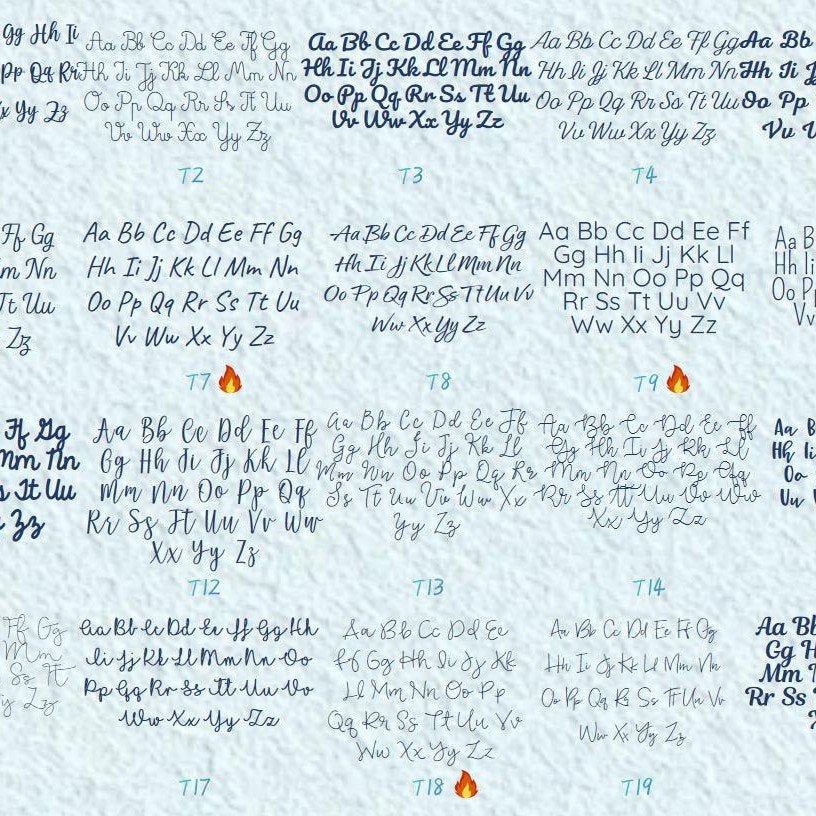 Gg Hh Ii
Pp Qq Rr
Yy Zz
Aa Bb Cc Dd Ee Ff Gg
Hh Ii Jj Kk Ll Mm Nn
Oo Pp Qq Rr Ss Tt Uu
Vv Ww Xx Yy Zz
T2
Aa Bb Cc Dd Ee Ff Gg
Hh Ii Jj Kk Ll Mm Nn
Oo Pp Qq Rr Ss Tt Uu
Vv Ww Xx Yy Zz
T3
Aa Bb Cc Dd Ee Ff Gg
Hh Ii Jj Kk Ll Mm Nn
Oo Pp Qq Rr Ss Tt Uu
Vv Ww Xx Yy Zz
T4
Aa Bb
Hh Ii
Oo Pp
Vv
Ff Gg
Nn
Tt Uu
Zz
Aa Bb Cc Dd Ee Ff Gg
Hh Ii Jj Kk Ll Mm Nn
Oo Pp Qq Rr Ss Tt Uu
Vv Ww Xx Yy Zz
T7🔥
Aa Bb Cc Dd Ee Ff Gg
Hh Ii Jj Kk Ll Mm Nn
Oo Pp Qq Rr Ss Tt Uu Vv
Ww Xx Yy Zz
T8
Aa Bb Cc Dd Ee Ff
Gg Hh Ii Jj Kk Ll
Mm Nn Oo Pp Qq
Rr Ss Tt Uu Vv
Ww Xx Yy Zz
T9🔥
Aa B
Hh Ii
Oo P
Vv
Ff Gg
Mm Nn
Tt Uu
Zz
Aa Bb Cc Dd Ee Ff
Gg Hh Ii Jj Kk Ll
Mm Nn Oo Pp Qq
Rr Ss Tt Uu Vv Ww
Xx Yy Zz
T12
Aa Bb Cc Dd Ee Ff
Gg Hh Ii Jj Kk Ll
Mm Nn Oo Pp Qq Rr
Ss Tt Uu Vv Ww Xx
Yy Zz
T13
Aa Bb Cc Dd Ee Ff
Gg Hh Ii Jj Kk Ll
Mm Nn Oo Pp Qq
Rr Ss Tt Uu Vv Ww
Xx Yy Zz
T14
Aa B
Hh Ii
Oo
Uu V
Ff Gg
Mm
Ss Tt
Zz
Aa Bb Cc Dd Ee Ff Gg Hh
Ii Jj Kk Ll Mm Nn Oo
Pp Qq Rr Ss Tt Uu Vv
Ww Xx Yy Zz
T17
Aa Bb Cc Dd Ee
Ff Gg Hh Ii Jj Kk
Ll Mm Nn Oo Pp
Qq Rr Ss Tt Uu Vv
Ww Xx Yy Zz
T18🔥
Aa Bb Cc Dd Ee Ff Gg
Hh Ii Jj Kk Ll Mm Nn
Oo Pp Qq Rr Ss Tt Uu Vv
Ww Xx Yy Zz
T19
Aa Bb
Gg H
Mm
Rr Ss